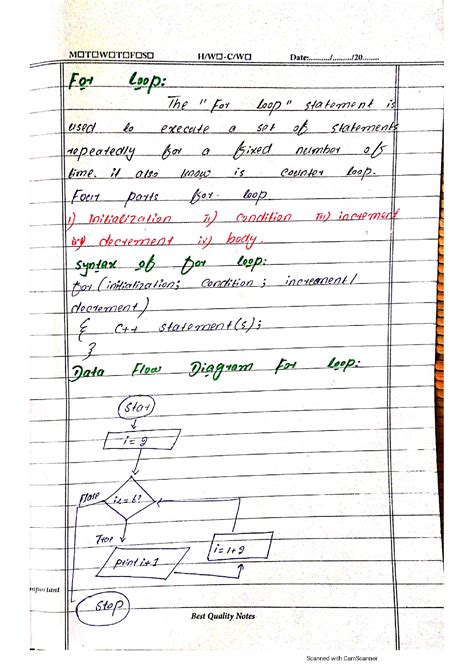 M□T□W□T□F□S□ H/W□-C/W□ Date:........../........./20........
For Loop:
The "For loop" statement is
used to execute a set of statements
repeatedly for a fixed number of
time. it also know is counter loop.
Four parts for loop
i) initialization ii) condition iii) increment
decrement iv) body.
Syntax of for loop:
for (initialization; condition; increment/
decrement)
{ C++ statement(s);
}
Data Flow Diagram For Loop:
Star
i = 2
Flase i<=6?
True
i=1+2
print i+1
Stop
mportant
Best Quality Notes
Scanned with CamScanner